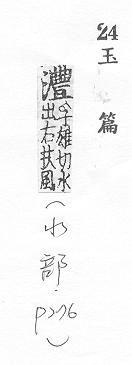 24
玉篇
灃孚雄切水
出右扶風
(水部.p276)